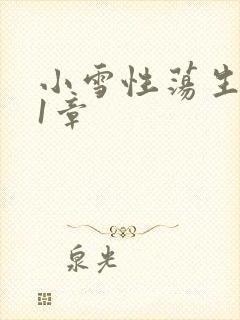 小雪性荡生
1章
泉光